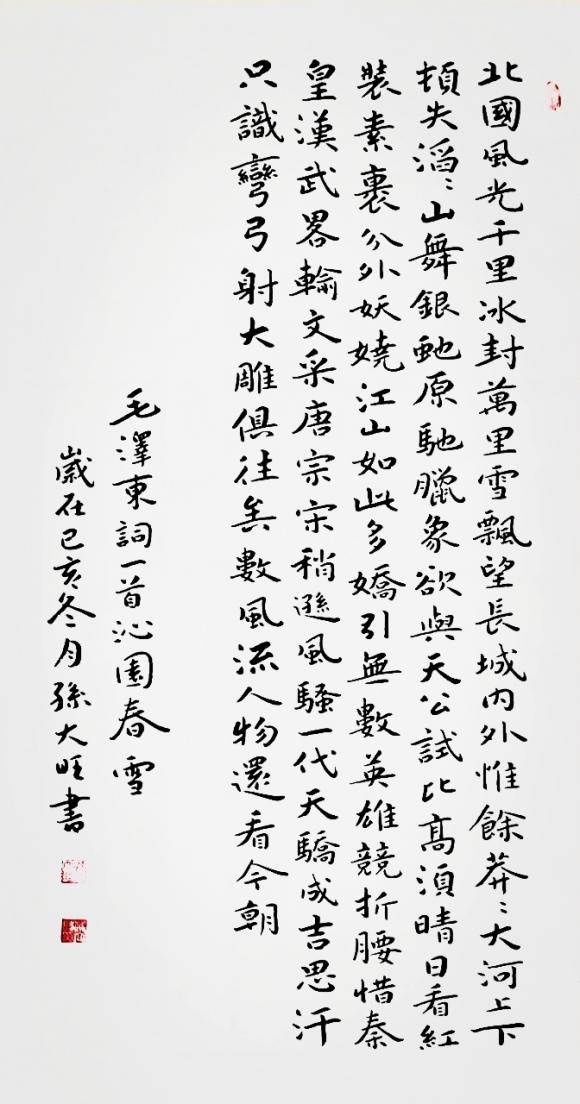 北國風光千里冰封萬里雪飄望長城内外惟餘莽〻大河上下
頓失滔〻山舞銀虵原馳臘象欲與天公試比高須晴日看紅
裝素裹分外妖嬈江山如此多嬌引無數英雄競折腰惜秦
皇漢武畧輸文采唐宗宋稍遜風騷一代天驕成吉思汗
只識彎弓射大雕俱往矣數風流人物還看今朝
毛澤東詞一首沁園春雪
歲在己亥冬月孫大旺書